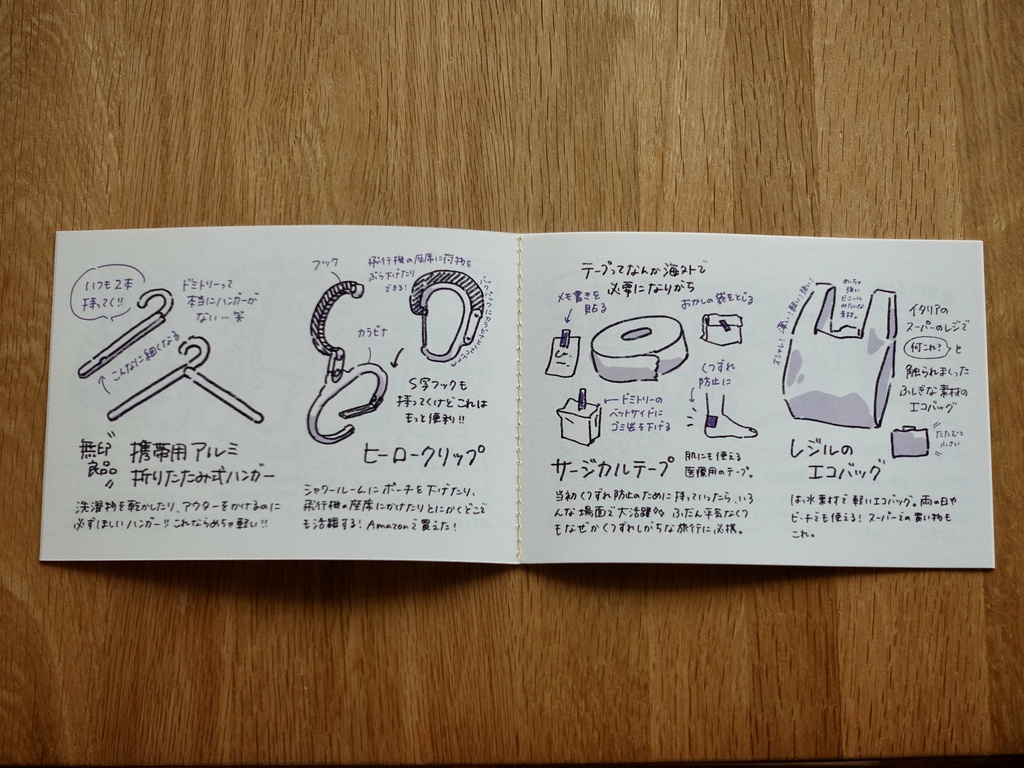 いつも2本
持ってく!!
ドミトリーって
本当にハンガーが
ない…笑
↑こんなに細くなる
無印
良品
携帯用アルミ
折りたたみ式ハンガー
洗濯物を乾かしたり、アウターをかけるのに
必ずほしいハンガー!! これならめちゃ軽い!!
フック
飛行機の座席に荷物を
ぶら下げたり
できる!
カラビナ
S字フックも
持ってくけどこれは
もっと便利!!
ヒーロークリップ
シャワールームにポーチを下げたり、
飛行機の座席にかけたりとにかくどこで
も活躍する! Amazonで買えた!
テープってなんか海外で
必要になりがち
メモ書きを
貼る
おかしの袋をとじる
くつずれ
防止に
←ドミトリーの
ベットサイドに
ゴミ袋を下げる
サージカルテープ
肌にも使える
医療用のテープ。
当初くつずれ防止のために持っていったら、いろ
んな場面で大活躍 ふだん平気なくつで
もなぜかくつずれしがちな旅行に必携。
めっちゃ
強い
ビニール
みたいな
素材。
イタリアの
スーパーのレジで
何これ?と
触られまくった
ふしぎな素材の
エコバッグ
たたむと
小さい
レジルの
エコバッグ
はっ水素材で軽いエコバッグ。雨の日や
ビーチでも使える! スーパーでの買い物も
これ。